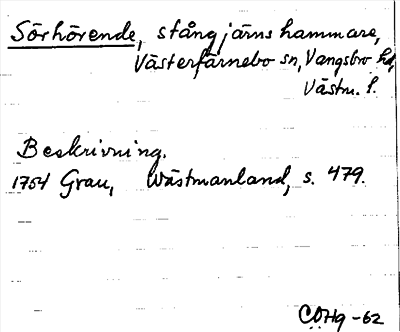 Sörhörende, stångjärnshammare,
Västerfärnebo sn, Vangsbro hd,
Västm. l.
Beskrivning.
1754 Grau, Wästmanland, s. 479.
COHg -62